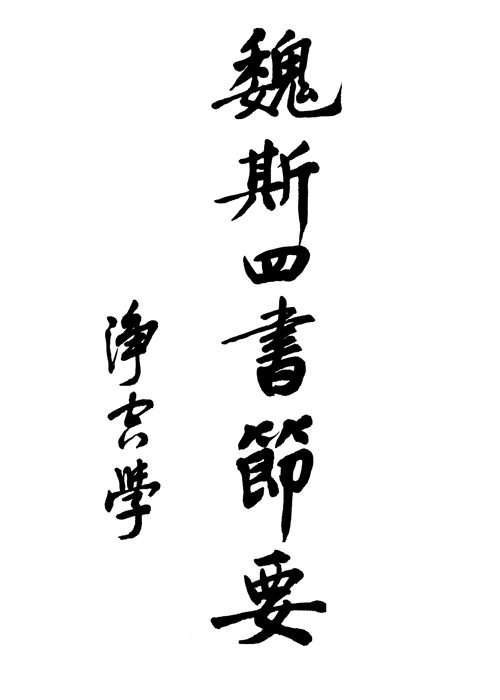 魏斯四書節要
淨空學